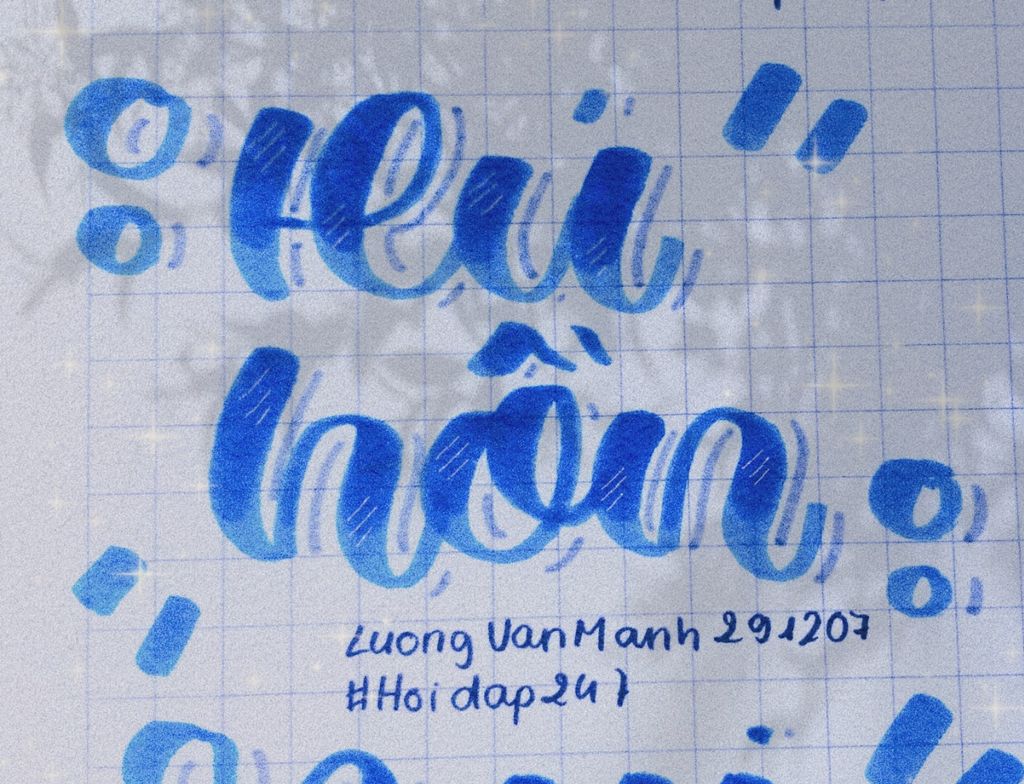 Hú
hồn
Luong Van Manh 291207
#Hoidap247